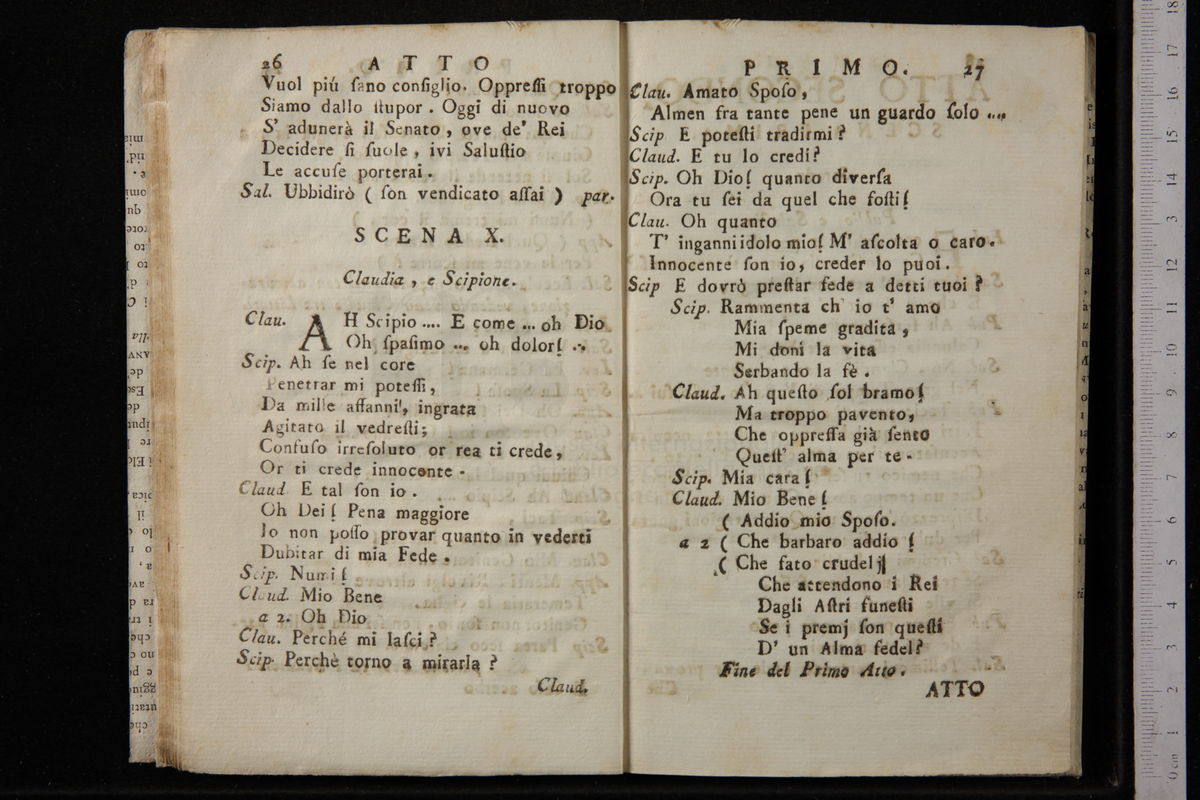 26 ATTO
Vuol più ſano conſiglio. Oppreſſi troppo
Siamo dallo ſtupor. Oggi di nuovo
S' adunerà il Senato, ove de' Rei
Decidere ſi ſuole, ivi Saluſtio
Le accuſe porterai.
Sal. Ubbidirò ( ſon vendicato aſſai ) par.
SCENA X.
Claudia, e Scipione.
Clau. AH Scipio .... E come ... oh Dio
Oh ſpaſimo ... oh dolor! ...
Scip. Ah ſe nel core
Penetrar mi poteſſi,
Da mille affanni, ingrata
Agitato il vedreſti;
Confuſo irreſoluto or rea ti crede,
Or ti crede innocente.
Claud. E tal ſon io.
Oh Dei! Pena maggiore
Io non poſſo provar quanto in vederti
Dubitar di mia Fede.
Scip. Numi!
Claud. Mio Bene
a 2. Oh Dio
Clau. Perché mi laſci?
Scip. Perchè torno a mirarla?
Claud.
PRIMO. 27
Clau. Amato Spoſo,
Almen fra tante pene un guardo ſolo ....
Scip E poteſti tradirmi?
Claud. E tu lo credi?
Scip. Oh Dio! quanto diverſa
Ora tu ſei da quel che foſti!
Clau. Oh quanto
T' inganni idolo mio! M' aſcolta o caro.
Innocente ſon io, creder lo puoi.
Scip E dovrò preſtar fede a detti tuoi?
Scip. Rammenta ch' io t' amo
Mia ſpeme gradita,
Mi doni la vita
Serbando la fè.
Claud. Ah queſto ſol bramo!
Ma troppo pavento,
Che oppreſſa già ſento
Queſt' alma per te.
Scip. Mia cara!
Claud. Mio Bene!
( Addio mio Spoſo.
a 2 ( Che barbaro addio!
( Che fato crudel!
Che attendono i Rei
Dagli Aſtri funeſti
Se i premj ſon queſti
D' un Alma fedel?
Fine del Primo Atto.
ATTO